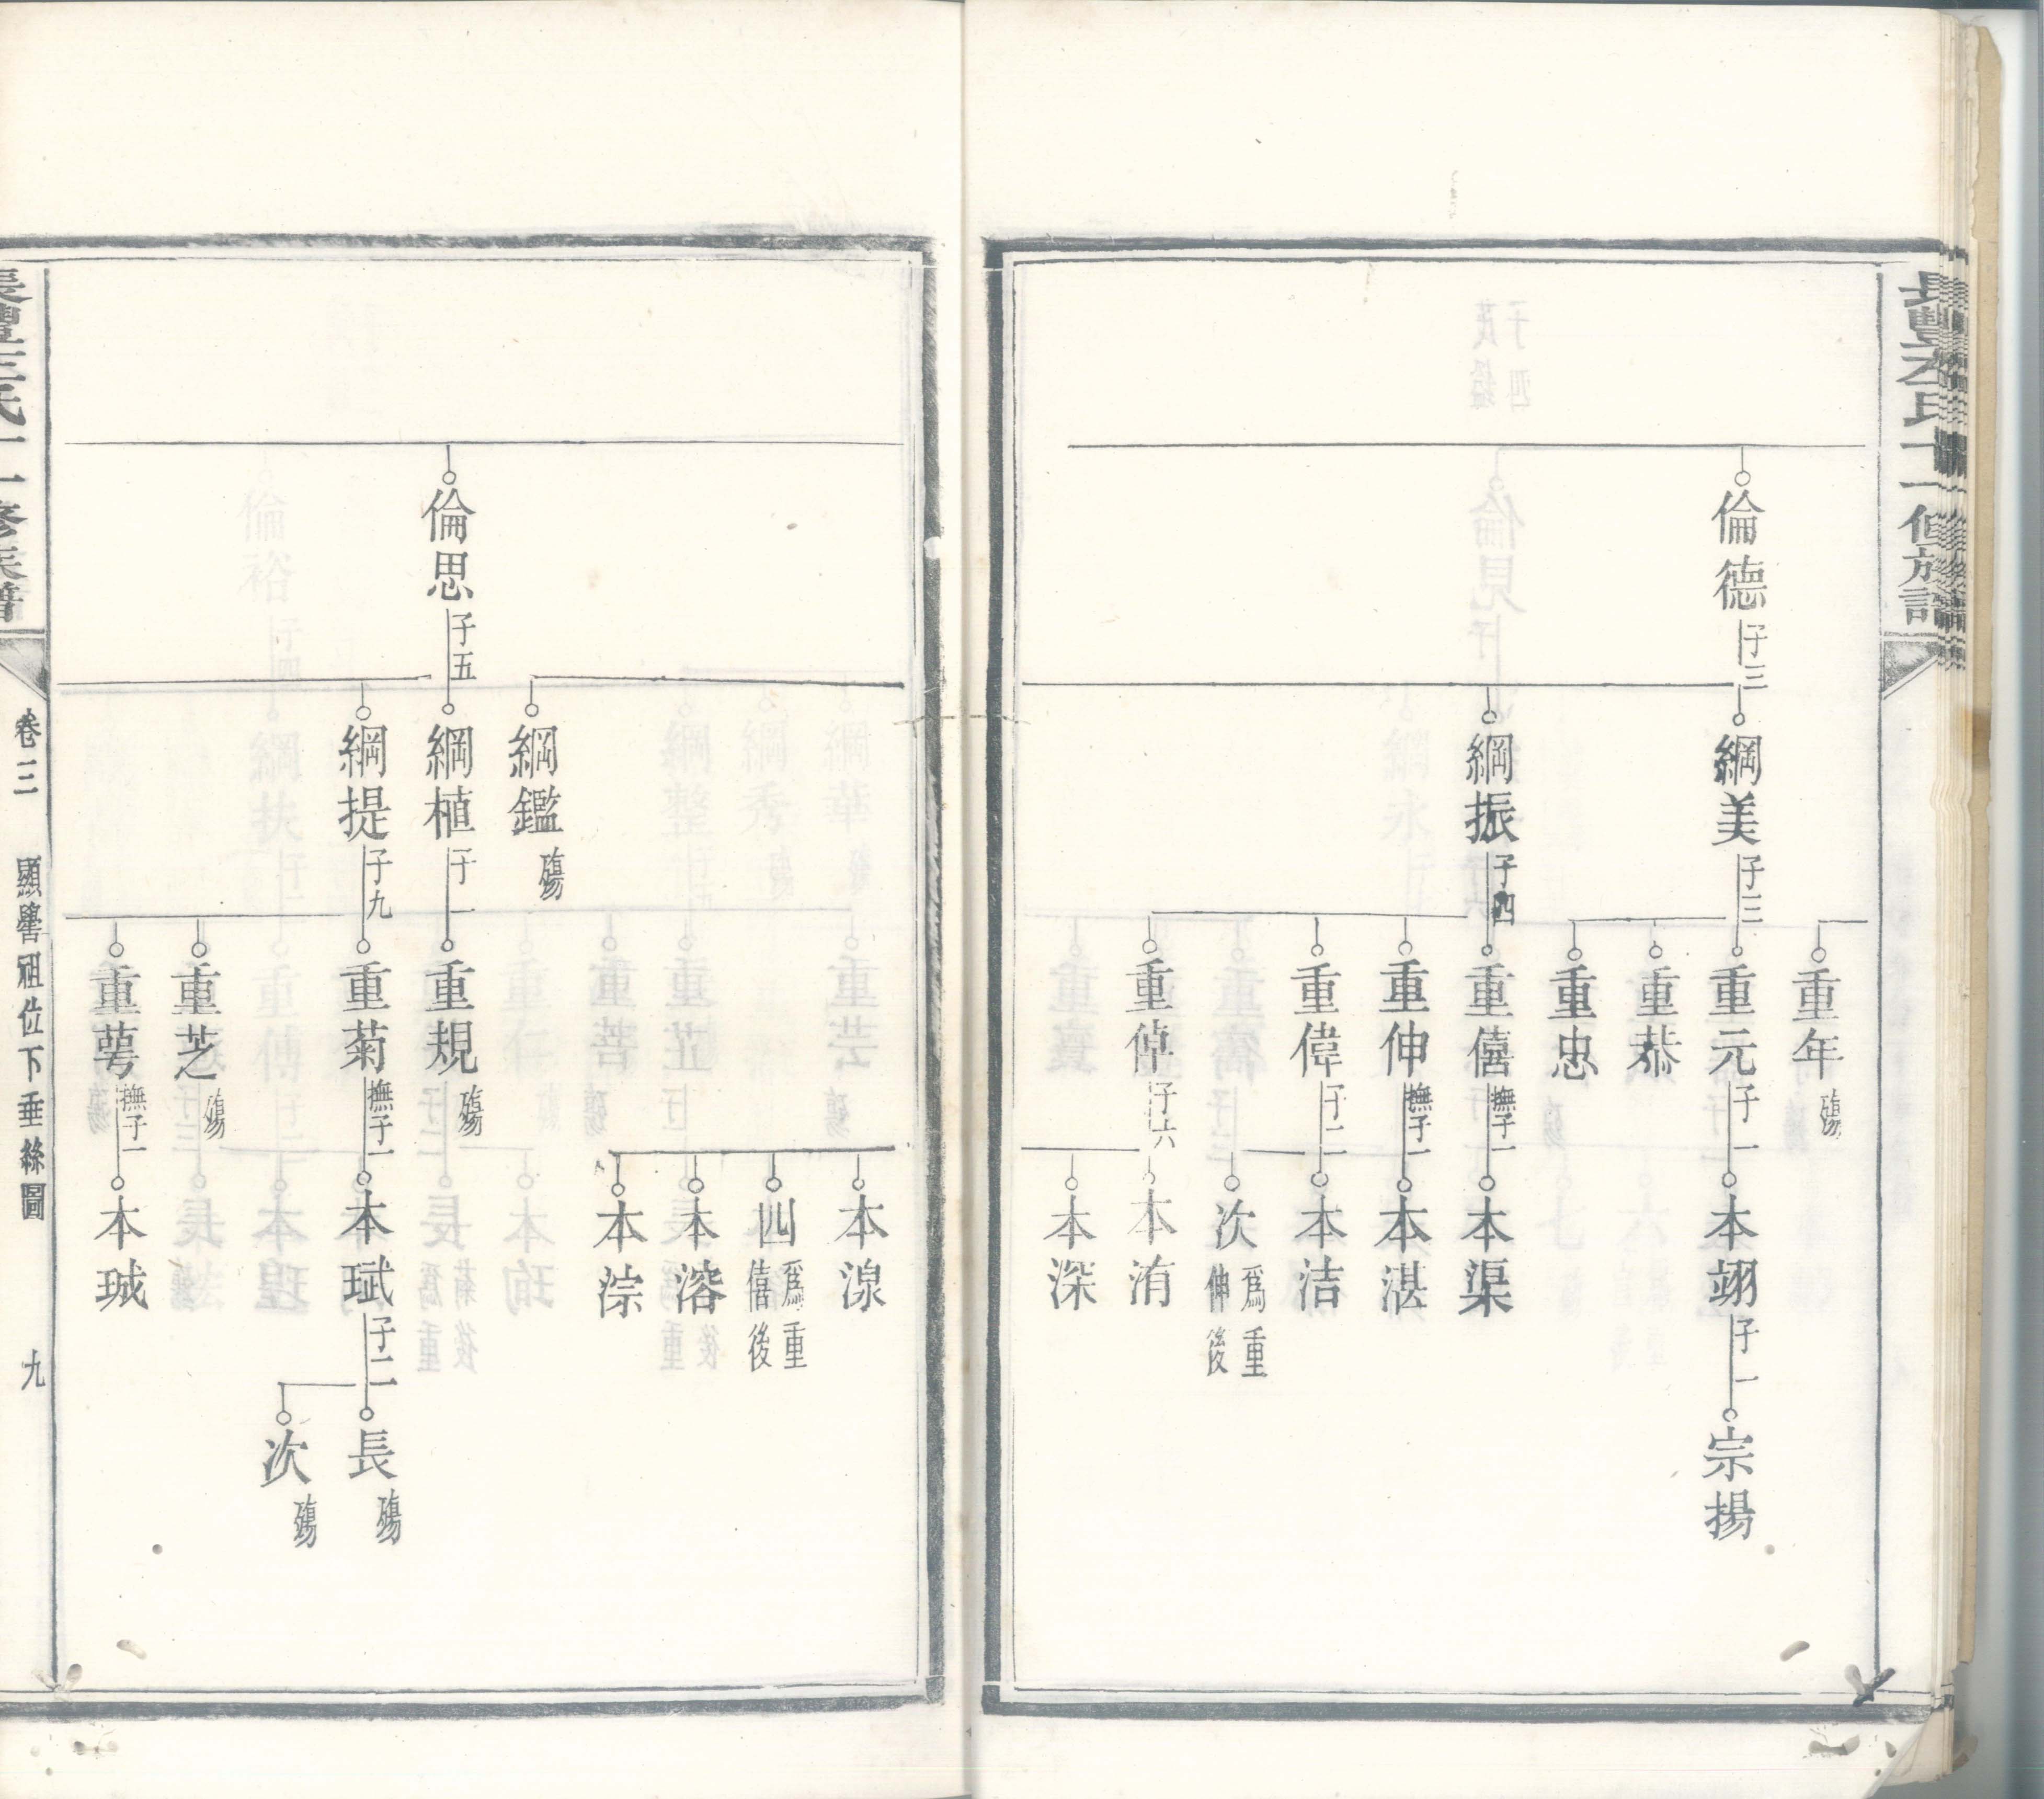 倫德 子三
綱美 子三
綱振 子四
重年 殤
重元 子一
重恭
重忠
重僖 撫子一
重伸 撫子一
重偉 子二
重倬 子六
本翊 子一
本渠
本湛
本洁
次 爲重伸後
本洧
本深
宗揚
倫思 子五
綱鑑 殤
綱植 子一
綱提 子九
重規 殤
重菊 撫子一
重芝 殤
重萼 撫子一
本湶
四 爲重僖後
本溶
本淙
本珷 子二
本珹
長 殤
次 殤
卷三
顯譽祖位下垂絲圖
九